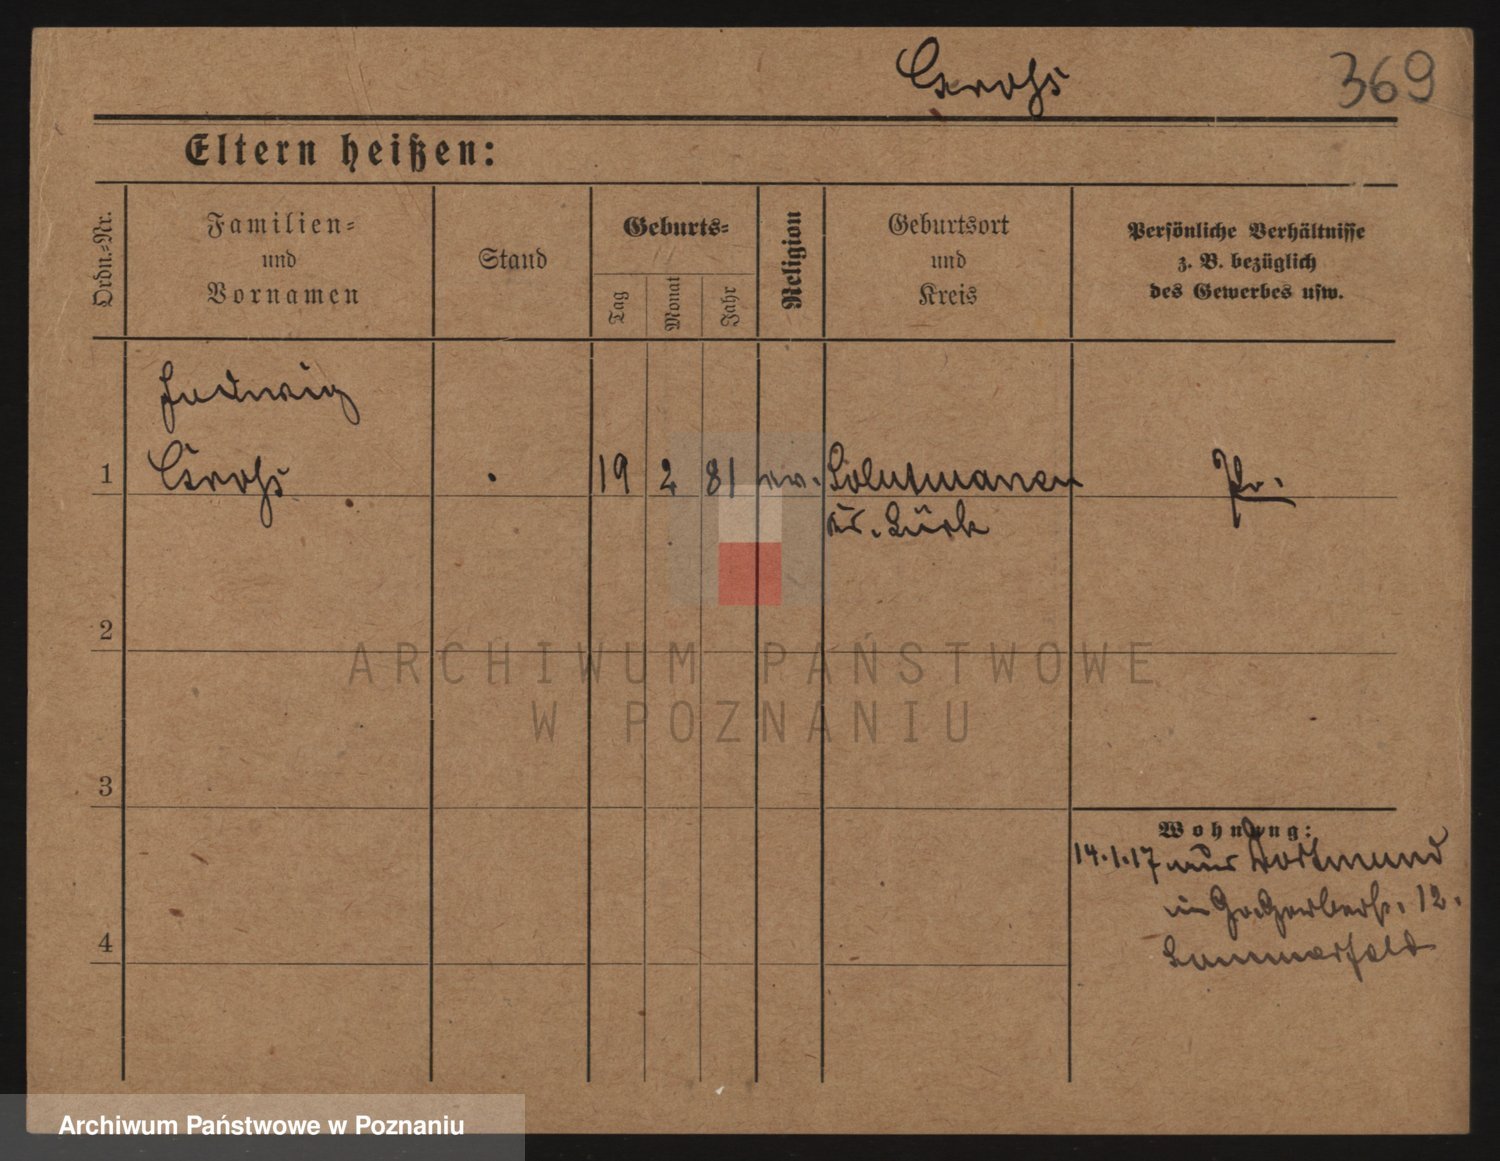 Grohs 369
Eltern heißen:
Ordn.-Nr.
Familien-
und
Vornamen
Stand
Geburts-
Tag
Monat
Jahr
Religion
Geburtsort
und
Kreis
Persönliche Verhältnisse
z. B. bezüglich
des Gewerbes usw.
Ludwig
1 Grohs 19 2 81 ev. Pr.
Kr.
2
ARCHIWUM PAŃSTWOWE
W POZNANIU
3
Wohnung:
14.1.17 aus Dortmund
12.
4 Sommerfeld
Archiwum Państwowe w Poznaniu